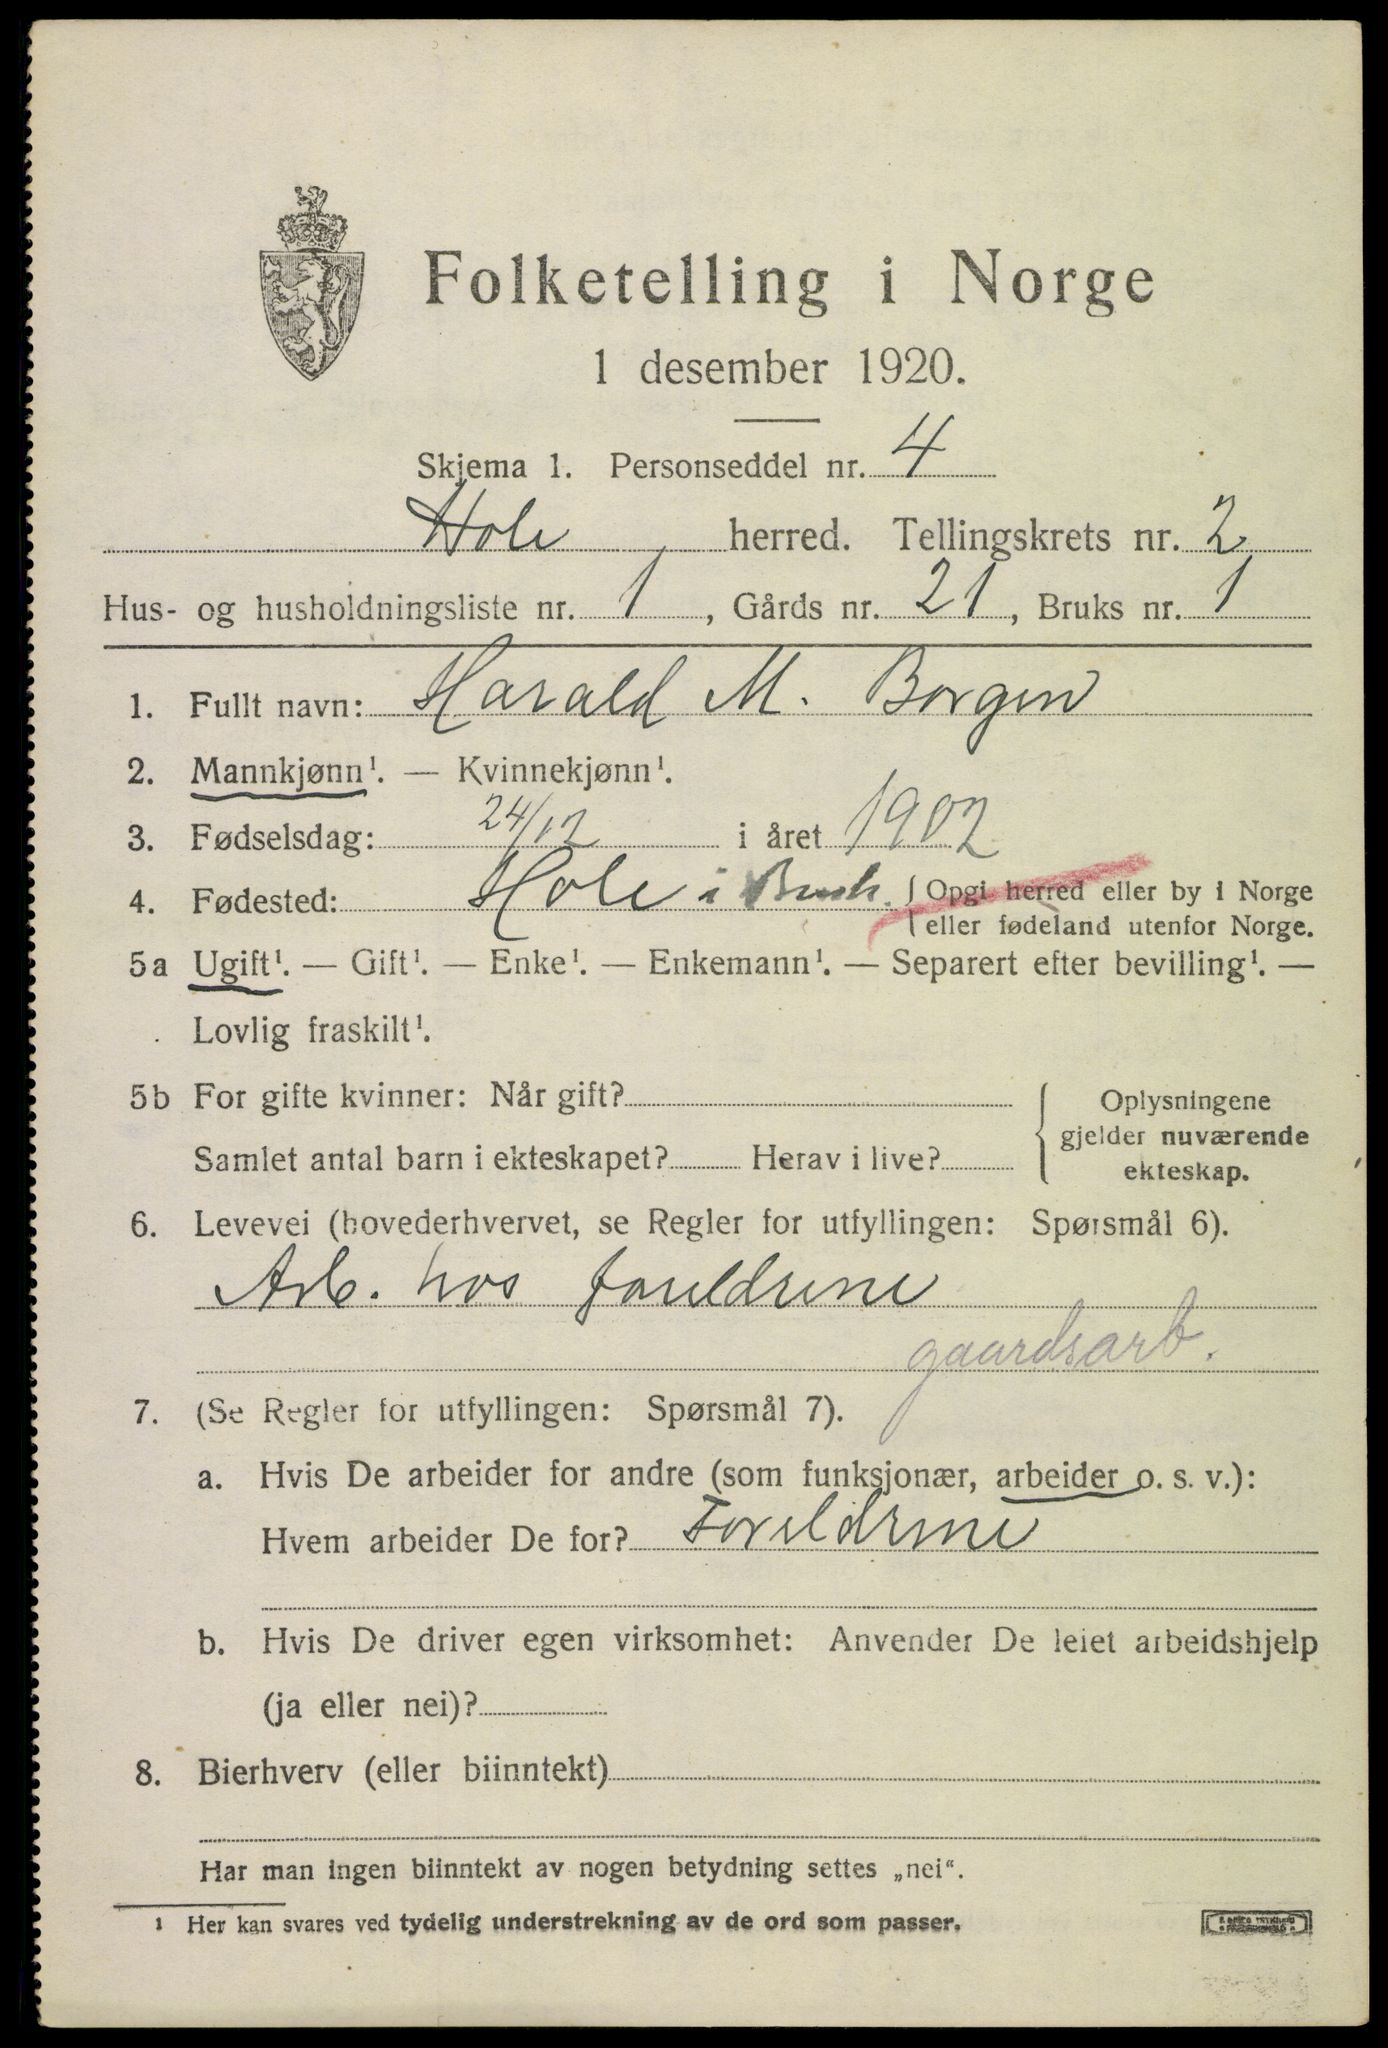 Folketelling i Norge
1 desember 1920.
Skjema 1. Personseddel nr. 4
Hole herred. Tellingskrets nr. 2
Hus- og husholdningsliste nr. 1, Gårds nr. 21, Bruks nr. 1
1. Fullt navn: Harald M. Borgen
2. Mannkjønn¹. — Kvinnekjønn¹.
3. Fødselsdag: 24/12 i året 1902
4. Fødested: Hole i Busk. { Opgi herred eller by i Norge
eller fødeland utenfor Norge.
5a Ugift¹. — Gift¹. — Enke¹. — Enkemann¹. — Separert efter bevilling¹. —
Lovlig fraskilt¹.
5b For gifte kvinner: Når gift?
Samlet antal barn i ekteskapet? Herav i live?
{ Oplysningene
gjelder nuværende
ekteskap.
6. Levevei (hovederhvervet, se Regler for utfyllingen: Spørsmål 6).
Arb. hos foreldrene
gaardsarb.
7. (Se Regler for utfyllingen: Spørsmål 7).
a. Hvis De arbeider for andre (som funksjonær, arbeider o. s. v.):
Hvem arbeider De for? Foreldrene
b. Hvis De driver egen virksomhet: Anvender De leiet arbeidshjelp
(ja eller nei)?
8. Bierhverv (eller biinntekt)
Har man ingen biinntekt av nogen betydning settes „nei“.
1 Her kan svares ved tydelig understrekning av de ord som passer.